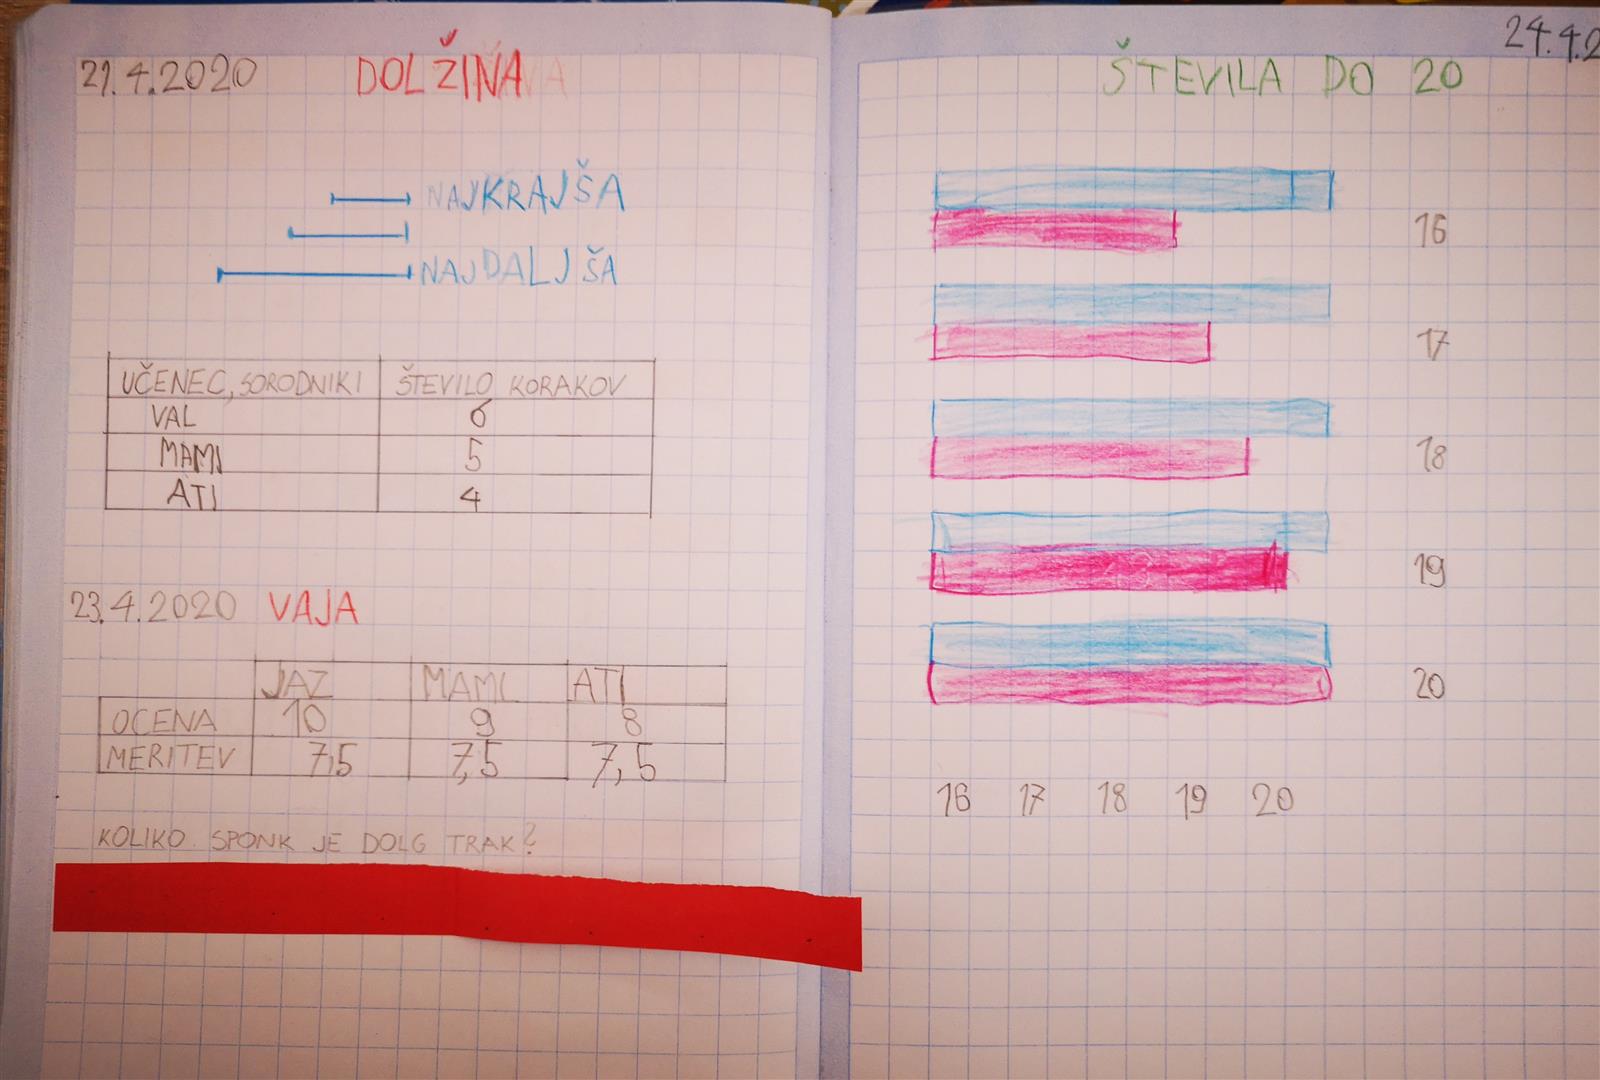 21.4.2020 DOLŽINA
NAJKRAJŠA
NAJDALJŠA
UČENEC, SORODNIKI ŠTEVILO KORAKOV
VAL 6
MAMI 5
ATI 4
23.4.2020 VAJA
JAZ MAMI ATI
OCENA 10 9 8
MERITEV 7,5 7,5 7,5
KOLIKO SPONK JE DOLG TRAK?
24.4.2
ŠTEVILA DO 20
16
17
18
19
20
16 17 18 19 20